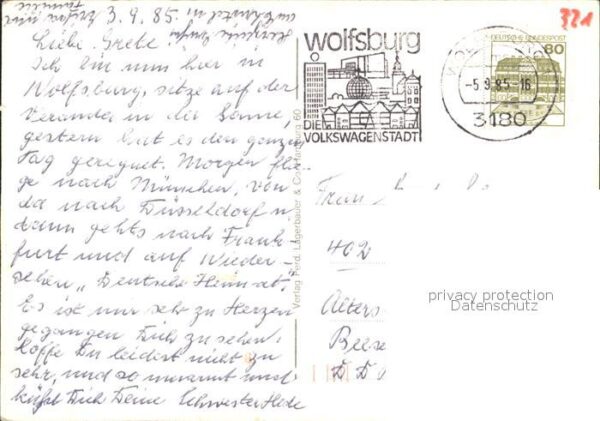 3.9.85.
321
Liebe Grete!
Ich bin nun hier in
Wolfsburg, sitze auf der
Veranda in der Sonne,
gestern hat es den ganzen
Tag geregnet. Morgen flie-
ge nach München, von
da nach Düsseldorf u.
dann gehts nach Frank-
furt und auf Wieder-
sehen "Deutsche Heimat".
Es ist mir sehr zu Herzen
gegangen Dich zu sehen.
Hoffe Du leidest nicht zu
sehr, und so umarmt und
küßt Dich Deine Schwester Hede
wolfsburg
DIE
VOLKSWAGENSTADT
DEUTSCHE BUNDESPOST
80
-5.9.85-16
3180
Verlag Ferd. Lagerbauer & Co. Hamburg 60
Frau
402
Alters
Beese
D D
privacy protection
Datenschutz